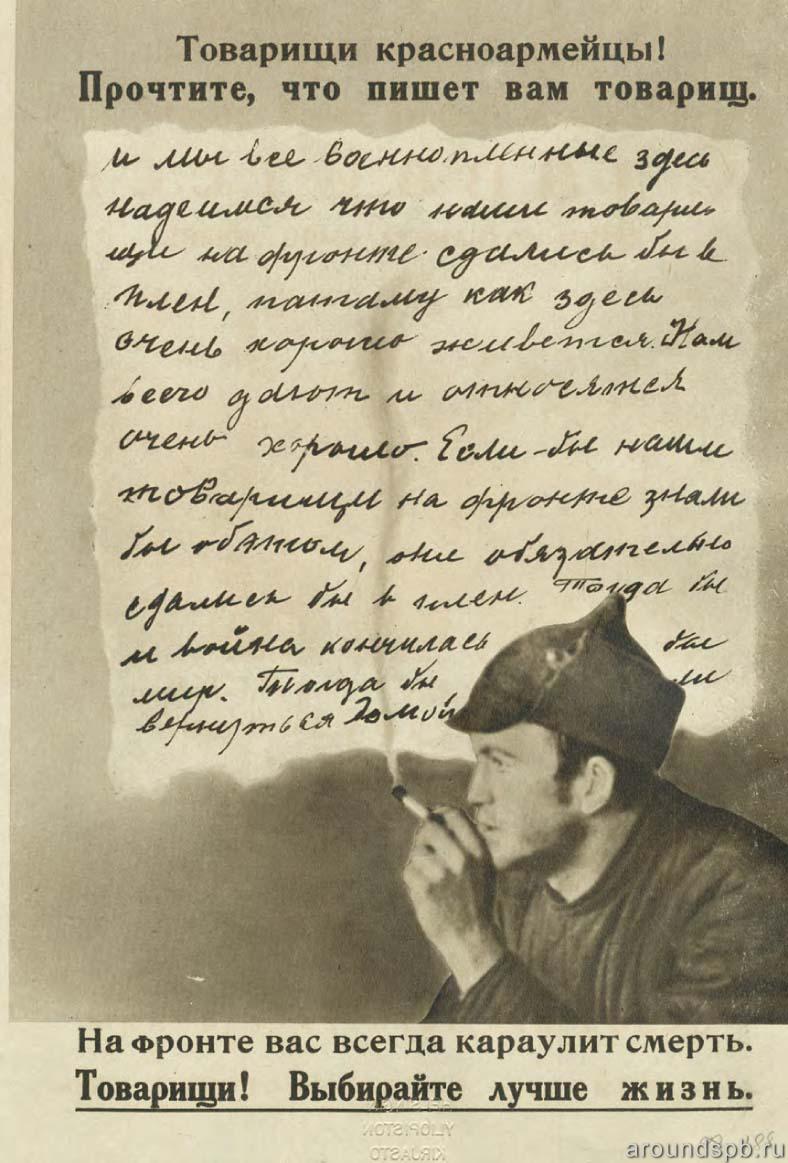 Товарищи красноармейцы!
Прочтите, что пишет вам товарищ.
и мы все военнопленные здесь
надеимся что наши товари-
щи на фронте сдались бы в
плен, патаму как здесь
очень хорошо живется. Нам
всего дают и относятся
очень хорошо. Если-бы наши
товарищи на фронте знали
бы обэтом, они обязательно
сдались бы в плен. Тогда бы
и война кончилась бы
мир. Тогда бы ли
вернуться домой
На фронте вас всегда караулит смерть.
Товарищи! Выбирайте лучше жизнь.
YLIOPISTON
KIRJASTO
aroundspb.ru